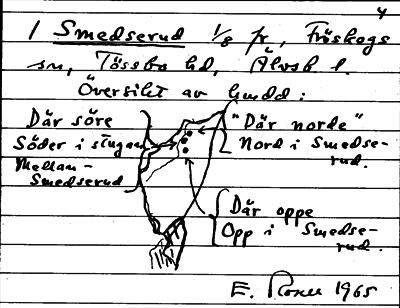 4
1 Smedserud 1/8 fr, Fröskogs
sn, Tössbo hd, Älvsb. l.
Översikt av
Där söre
Söder i stugan
Mellan-
Smedserud
"Där norde"
Nord i Smedse-
rud.
Där oppe
Opp i Smedse-
rud.
E. 1965